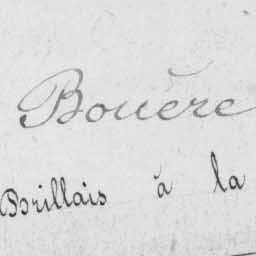 Bouère
Borillais à la